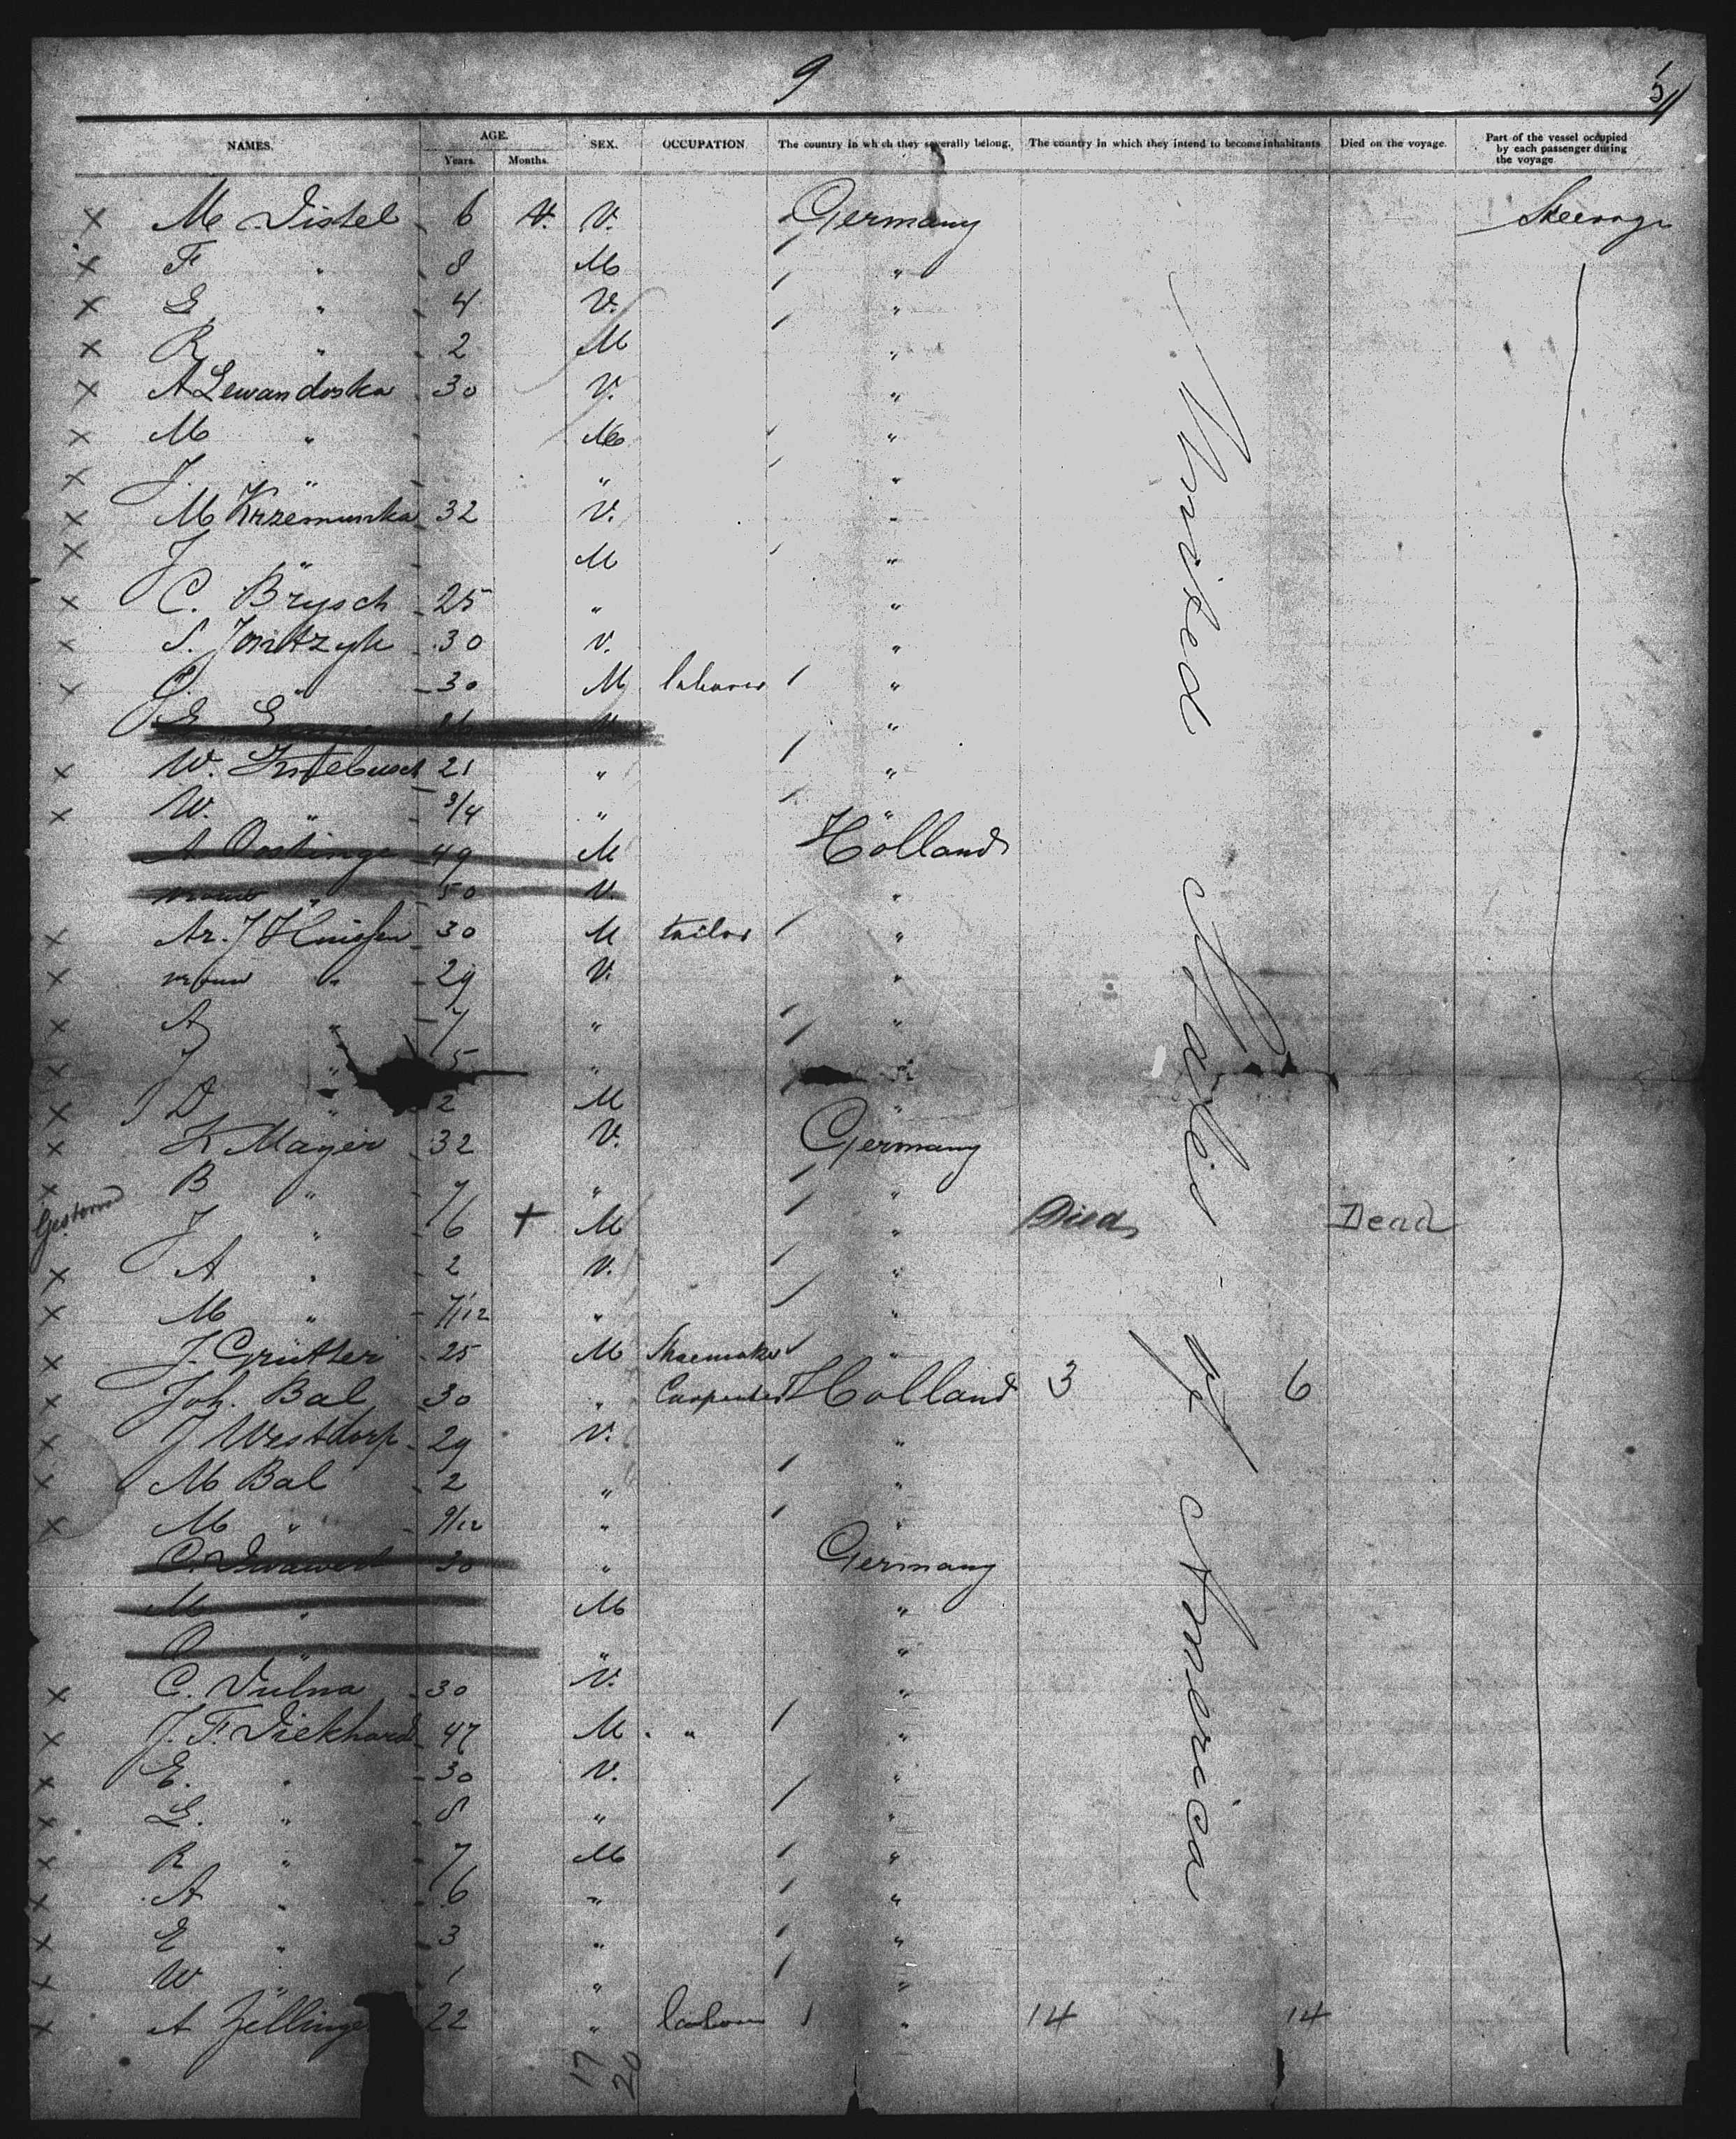 9
NAMES. AGE. Years. Months. SEX. OCCUPATION. The country in which they severally belong. The country in which they intend to become inhabitants Died on the voyage. Part of the vessel occupied by each passenger during the voyage
M Distel 6 V. V. Germany Steerage
F " 8 M "
G " 4 V. "
R " 2 M "
A Lewandoska 30 V. "
M " M "
J. " " "
M Krzemunka 32 V. "
J " M "
C. Brysch 25 " "
S. 30 V. "
J. " 30 M laborer "
"
W. 21 " "
W. " 3/4 " "
A Oostinga 49 M Holland
vrouw " 50 V. "
Ar. J Huissen 30 M tailor "
vrouw " 29 V. "
A " 7 " "
J " 5 " "
D " 2 M "
K Mayer 32 V. Germany
B " 7 " "
Gestorven J " 6 + M " Died Dead
A " 2 V. "
M " 7/12 " "
J. Grütter 25 M Shoemaker "
Joh. Bal 30 " Carpenter Holland 3 6
J Westdorp 29 V. "
M Bal 2 " "
M " 9/12 " "
C. 30 " Germany
M " M "
" " "
C. Dulna 30 V. "
J. F. Diekhard 47 M " "
E. " 30 V. "
L. " 8 " "
R " 7 M "
A " 6 " "
E " 3 " "
W " 1 " "
A Zellinge 22 " labor " 14 14
17 20
United States of America